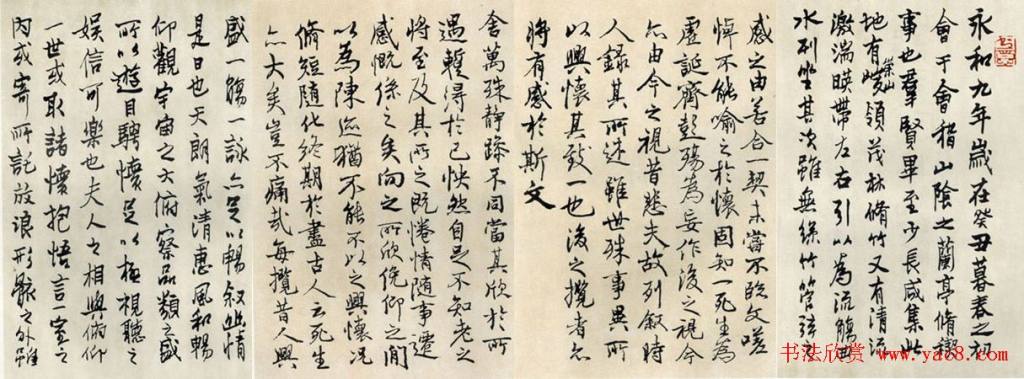 永和九年歲在癸丑暮春之初
會于會稽山陰之蘭亭脩禊
事也群賢畢至少長咸集此
地有崇山峻領茂林脩竹又有清流
激湍暎帶左右引以為流觴曲
水列坐其次雖無絲竹管弦之
感之由若合一契未嘗不臨文嗟
悼不能喻之於懷固知一死生為
虛誕齊彭殤為妄作後之視今
亦由今之視昔悲夫故列敘時
人錄其所述雖世殊事異所
以興懷其致一也後之攬者亦
將有感於斯文
舍萬殊靜躁不同當其欣於所
遇暫得於己怏然自足不知老之
將至及其所之既惓情隨事遷
感慨係之矣向之所欣俛仰之閒
以為陳迹猶不能不以之興懷況
脩短隨化終期於盡古人云死生
亦大矣豈不痛哉每攬昔人興
盛一觴一詠亦足以暢敘幽情
是日也天朗氣清惠風和暢
仰觀宇宙之大俯察品類之盛
所以遊目騁懷足以極視聽之
娛信可樂也夫人之相與俯仰
一世或取諸懷抱悟言一室之
內或寄所託放浪形骸之外雖
书法欣赏 www.yac8.com